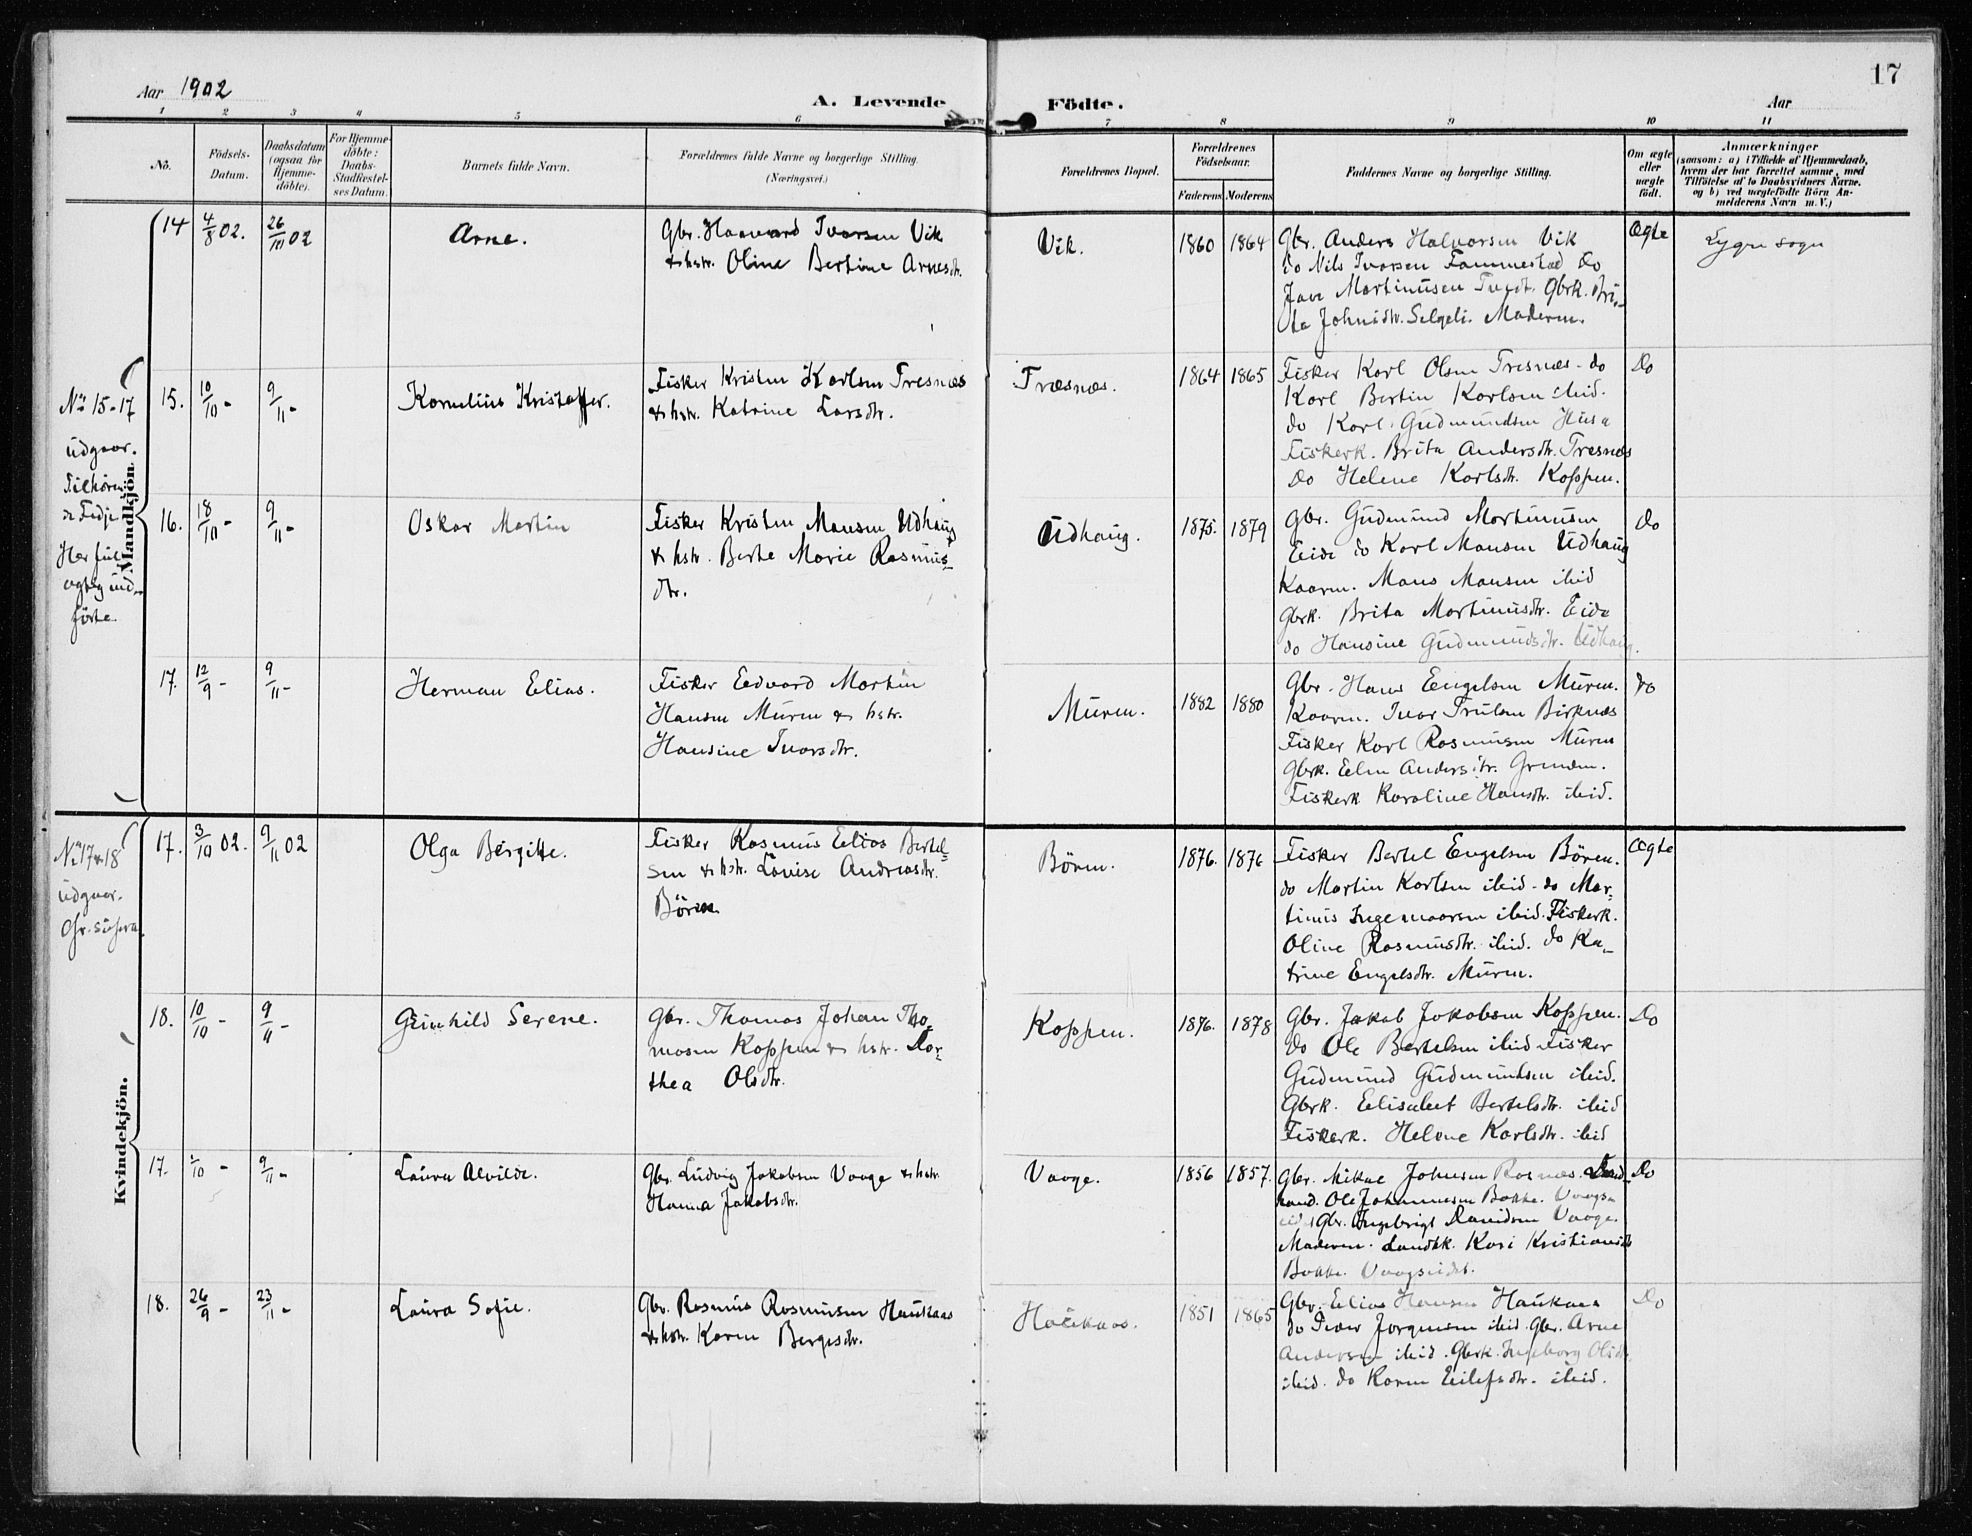 17
Aar 1902
A. Levende Födte.
Aar
1 2 3 4 5 6 7 8 9 10 11
No.
Födsels-
Datum.
Daabsdatum
(ogsaa for
Hjemme-
döbte).
For Hjemme-
döbte:
Daabs-
Stadfæstel-
ses Datum.
Barnets fulde Navn.
Forældrenes fulde Navne og borgerlige Stilling.
(Næringsvei.)
Forældrenes Bopæl.
Forældrenes
Födselsaar.
Faderens Moderens
Faddernes Navne og borgerlige Stilling.
Om ægte
eller
uægte
födt.
Anmærkninger
(saasom: a) i Tilfælde af Hjemmedaab,
hvem der har forrettet samme, med
Tilföielse af to Daabsvidners Navne,
og b) ved uægtefödte Börn An-
melderens Navn m. V.)
Mandkjön.
14 4/8 02. 26/10 02
Arne.
Gbr. Haavard Ivarsen Vik
& hstr. Oline Bertine Arnesdtr.
Vik.
1860 1864
Gbr. Anders Halvorsen Vik
do Nils Ivarsen Fammestad do
Martinusen Gbrk. Bri-
ta Johnsdtr. Selgeli. Moderen.
Ægte
Lygre sogn
No 15-17
udgaar.
Tilhörer
Fedje
förte.
15. 10/10 - 9/11 -
Kornelius Kristoffer.
Fisker Kristen Karlsen Tresnæs
& hstr. Katrine Larsdtr.
Træsnæs.
1864 1865
Fisker Karl Olsen Tresnæs - do
Karl Bertin Karlsen ibid.
do Karl Gudmundsen Husa
Fiskerk. Brita Andersdtr. Tresnæs
Do Helene Karlsdtr. Koppen.
Do
16. 18/10 - 9/11 -
Oskar Martin
Fisker Kristen Monsen Udhaug
& hstr. Berte Marie Rasmus-
dtr.
Udhaug.
1875. 1879
Gbr. Gudmund Martinusen
Eide do Karl Monsen Udhaug
Kaarm. Mons Monsen ibid
Gbrk. Brita Martinusdtr. Eide
do Hansine Gudmundsdtr. Udhaug.
Do
17. 12/9 - 9/11 -
Herman Elias.
Fisker Edvard Martin
Hansen Muren & hstr.
Hansine Ivarsdtr.
Muren.
1882 1880
Gbr. Hans Engelsen Muren.
Kaarm. Ivar Trulsen Birknæs
Fisker Karl Rasmusen Muren
Gbrk. Elen Andersdtr. Grinden.
Fiskerk Karoline Hansdtr. ibid.
do
Kvindekjön.
No 17 & 18
udgaar.
Gr. supra.
17. 3/10 02. 9/11 02
Olga Bergitte.
Fisker Rasmus Elias Bertel-
sen & hstr. Lovise Andreasdtr.
Bören
Bören.
1876. 1876
Fisker Bertel Engelsen Bören.
do Martin Karlsen ibid - do Mar-
tinus Ingemaarsen ibid. Fiskerk.
Oline Rasmusdtr. ibid. do Ka-
trine Engelsdtr. Muren.
Ægte
18. 10/10 - 9/11 -
Gunhild Serene.
Gbr. Thomas Johan Tho-
masen Koppen & hstr. Dor-
thea Olsdtr.
Koppen.
1876. 1878
Gbr. Jakob Jakobsen Koppen.
do Ole Bertelsen ibid Fisker
Gudmund Gudmundsen ibid.
Gbrk. Elisabet Bertelsdtr. ibid
Fiskerk. Helene Karlsdtr. ibid
Do
17. /10 - 9/11 -
Laura Alvilde.
Gbr. Ludvig Jakobsen Vaage & hstr.
Hanna Jakobsdtr.
Vaage.
1856 1857.
Gbr. Mikal Johnsen Rosnæs. Land-
hand. Ole Johannesen Bakke. Vaags-
eidet Gbr. Ingebrigt Davidsen Vaage.
Moderen. Landhk. Kari Kristiansdtr
Bakke. Vaagseidet.
Do
18. 26/9 - 23/11 -
Laura Sofie.
Gbr. Rasmus Rasmusen Haukaas
& hstr. Karen Bergesdtr.
Haukaas.
1851 1865
Gbr. Elias Hansen Haukaas
do Peder Jörgensen ibid. Gbr. Arne
Andersen ibid. Gbrk. Ingeborg Olsdtr.
ibid. do Karen Eilefsdtr. ibid.
Do